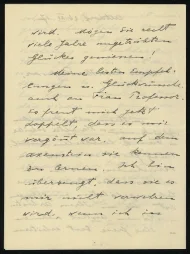 wird. Mögen Sie recht
viele Jahre ungetrübten
Glückes geniessen!
Meine besten Empfeh-
lungen u. Glückwünsche
auch an Frau
so freut mich jetzt
doppelt, dass es mir
vergönnt war, auf dem
Sie kennen
zu lernen. Ich bin
überzeugt, dass sie es
mir nicht verwehren
wird, wenn ich ins